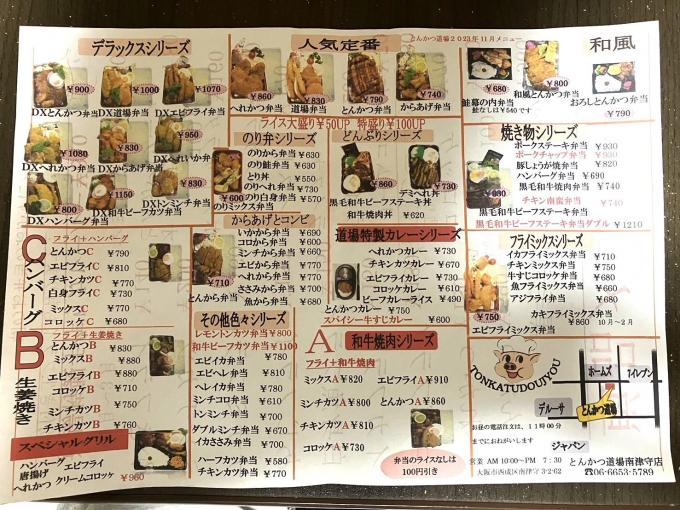 とんかつ道場2023年11月メニュー
デラックスシリーズ
¥900 ¥1000 ¥1070
DXとんかつ弁当 DX道場弁当 DXエビフライ弁当
¥1080 ¥830 ¥950
DXへれかつ弁当 DXからあげ弁当 DXへれいか弁当
¥1150 ¥830
DXハンバーグ弁当 DX和牛ビーフカツ弁当 DXトンミンチ弁当
人気定番
¥860 ¥830 ¥790 ¥740
へれかつ弁当 道場弁当 とんかつ弁当 からあげ弁当
ライス大盛り¥50UP 特盛り¥100UP
和風
¥680 ¥800
鮭幕の内弁当 和風とんかつ弁当 おろしとんかつ弁当
鮭なしは¥540です
¥790
のり弁シリーズ
のりから弁当 ¥630
のり鮭弁当 ¥630
とり丼 ¥550
のりへれ弁当 ¥730
のり白身弁当 ¥570
¥600 のりミックス弁当
どんぶりシリーズ
¥860 ¥730
デミへれ丼
黒毛和牛ビーフステーキ丼
和牛焼肉丼 ¥620
焼き物シリーズ
ポークステーキ弁当 ¥930
ポークチャップ弁当 ¥930
豚しょうが焼弁当 ¥820
ハンバーグ弁当 ¥690
黒毛和牛焼肉弁当 ¥740
チキン南蛮弁当 ¥740
黒毛和牛ビーフステーキ弁当
黒毛和牛ビーフステーキ弁当ダブル ¥1210
からあげとコンビ
いかから弁当 ¥690
コロから弁当 ¥600
ミンチから弁当 ¥660
エビから弁当 ¥700
へれから弁当 ¥700
ささみから弁当 ¥750
魚から弁当 ¥680
¥710
とんから弁当
道場特製カレーシリーズ
へれかつカレー ¥730
チキンカツカレー ¥670
エビフライカレー ¥730
コロッケカレー ¥610
ビーフカレーライス ¥490
¥750
とんかつカレー
スパイシー牛すじカレー ¥600
フライミックスシリーズ
イカフライミックス弁当 ¥710
チキンミックス弁当 ¥750
牛すじコロッケ弁当 ¥680
魚フライミックス弁当 ¥710
アジフライ弁当 ¥650
カキフライミックス弁当
¥860 10月~2月
¥730
エビフライミックス弁当
C ハンバーグ
フライ+ハンバーグ
とんかつC ¥790
エビフライC ¥810
チキンカツC ¥770
白身フライC ¥730
ミックスC ¥770
コロッケC ¥680
B 生姜焼き
フライ+生姜焼き
とんかつB ¥830
ミックスB ¥880
エビフライB ¥880
コロッケB ¥710
ミンチカツB ¥750
チキンカツB ¥760
スペシャルグリル
ハンバーグ エビフライ
唐揚げ クリームコロッケ
へれかつ ¥960
その他色々シリーズ
レモントンカツ弁当 ¥800
和牛ビーフカツ弁当 ¥1100
エビイカ弁当 ¥780
エビヘレ弁当 ¥810
ヘレイカ弁当 ¥780
ミンチコロ弁当 ¥610
トンミンチ弁当 ¥700
ダブルミンチ弁当 ¥690
イカささみ弁当 ¥700
ハーフカツ弁当 ¥580
チキンカツ弁当 ¥770
A 和牛焼肉シリーズ
フライ+和牛焼肉
ミックスA ¥820 エビフライA ¥910
ミンチカツA ¥800 とんかつA ¥860
チキンカツA ¥810
コロッケA ¥730
弁当のライスなしは
100円引き
TONKATUDOUJYOU
ホームズ アイレブン
デルーサ とんかつ道場
ジャパン
お昼の電話注文は、11時00分
までにおねがいします
営業 AM10:00~PM 7:30
大阪市西成区南津守3-2-62
とんかつ道場南津守店
☎06-6653-5789